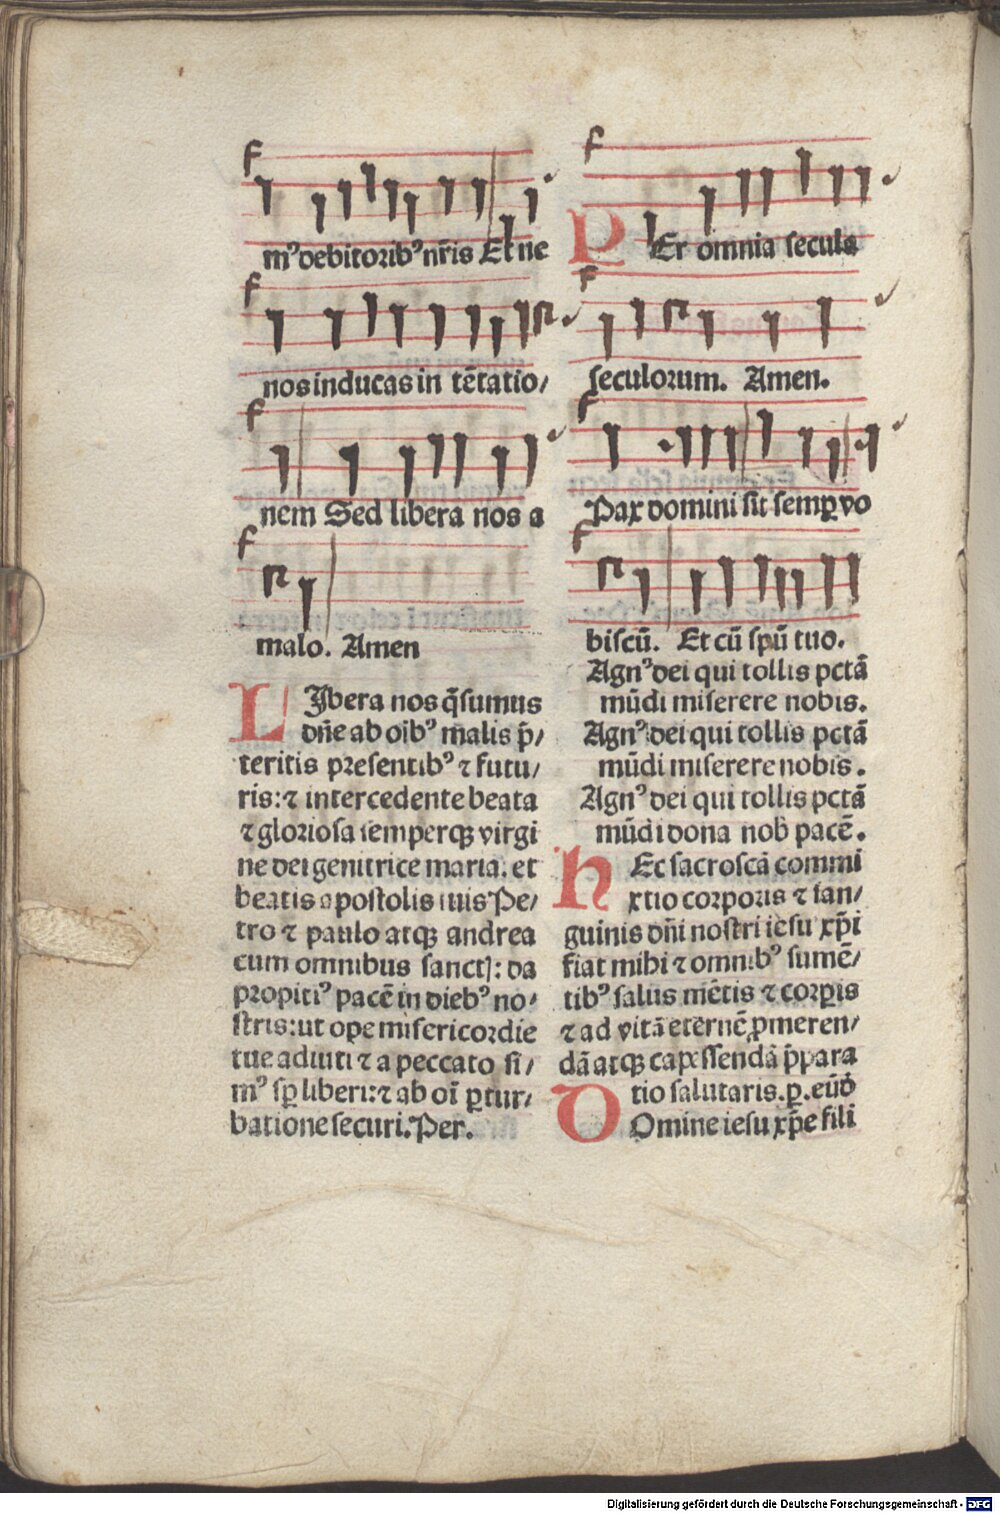 mꝰ debitoribꝰ nr̄is Et ne
nos inducas in tētatio/
nem Sed libera nos a
malo. Amen
LIbera nos q̄sumus
dn̄e ab oībꝰ malis p̄/
teritis presentibꝰ ⁊ futu/
ris: ⁊ intercedente beata
⁊ gloriosa semperqꝫ virgi
ne dei genitrice maria: et
beatis apostolis tuis Pe/
tro ⁊ paulo atqꝫ andrea
cum omnibus sanctꝭ: da
propitiꝰ pacē in diebꝰ no/
stris: ut ope misericordie
tue adiuti ⁊ a peccato si/
mꝰ sꝑ liberi: ⁊ ab oī ꝑtur/
batione securi. Per.
PEr omnia secula
seculorum. Amen.
Pax domini sit semꝑ vo
biscū. Et cū spū tuo.
Agnꝰ dei qui tollis pctā
mūdi miserere nobis.
Agnꝰ dei qui tollis pctā
mūdi miserere nobis.
Agnꝰ dei qui tollis pctā
mūdi dona nob̄ pacē.
HEc sacroscā commi
xtio corporis ⁊ san/
guinis dn̄i nostri iesu xp̄i
fiat mihi ⁊ omnibꝰ sumē/
tibꝰ salus mētis ⁊ corꝑis
⁊ ad vitā eternē ꝓmeren/
dā atqꝫ capessendā p̄para
tio salutaris. ꝑ. eūd
DOmine iesu xp̄e fili
Digitalisierung gefördert durch die Deutsche Forschungsgemeinschaft - DFG